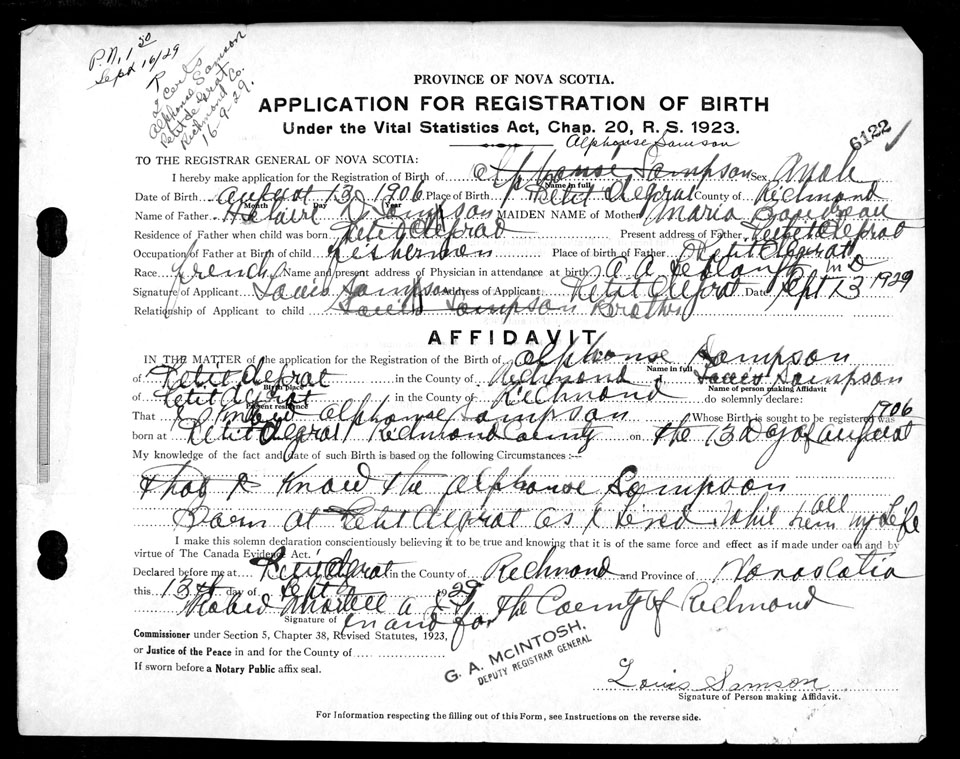 P.N. 1 50
Sept 16/29
2 Certs
Alphonse Samson
Petit de Grat
Richmond Co.
16-9-29.
PROVINCE OF NOVA SCOTIA.
APPLICATION FOR REGISTRATION OF BIRTH
Under the Vital Statistics Act, Chap. 20, R. S. 1923.
6122
Alphonse Samson
TO THE REGISTRAR GENERAL OF NOVA SCOTIA:
I hereby make application for the Registration of Birth of Alphonse Sampson Sex Male
Name in full
Date of Birth August 13 1906 Place of Birth Petit Degrat County of Richmond
Month Day Year
Name of Father Sampson MAIDEN NAME of Mother Maria
Residence of Father when child was born Petit Degrat Present address of Father Petit Degrat
Occupation of Father at Birth of child Fisherman Place of birth of Father Petit Degrat
Race French Name and present address of Physician in attendance at birth A A LeBlanc M D
Signature of Applicant Louis Sampson Address of Applicant Petit Degrat Date Sept 13 1929
Relationship of Applicant to child Louis Sampson Brother
AFFIDAVIT
IN THE MATTER of the application for the Registration of Birth of Alphonse Sampson
Name in full
of Petit Degrat in the County of Richmond I Louis Sampson
Birth place Name of person making Affidavit
of Petit Degrat in the County of Richmond do solemnly declare:
Present residence
That Alphonse Sampson Whose Birth is sought to be registered was 1906
born at Petit Degrat Richmond County on the 13 Day of August
My knowledge of the fact and date of such Birth is based on the following Circumstances :--
That I Know the Alphonse Sampson
Born at Petit Degrat as I Lived Whit hem all my Life
I make this solemn declaration conscientiously believing it to be true and knowing that it is of the same force and effect as if made under oath and by
virtue of The Canada Evidence Act.
Declared before me at Petit Degrat in the County of Richmond and Province of Novascotia
this 13th day of Sept 1929
in and for the County of Richmond
Signature of
Commissioner under Section 5, Chapter 38, Revised Statutes, 1923,
or Justice of the Peace in and for the County of
If sworn before a Notary Public affix seal.
G. A. McINTOSH,
DEPUTY REGISTRAR GENERAL
Louis Samson
Signature of Person making Affidavit.
For Information respecting the filling out of this Form, see Instructions on the reverse side.